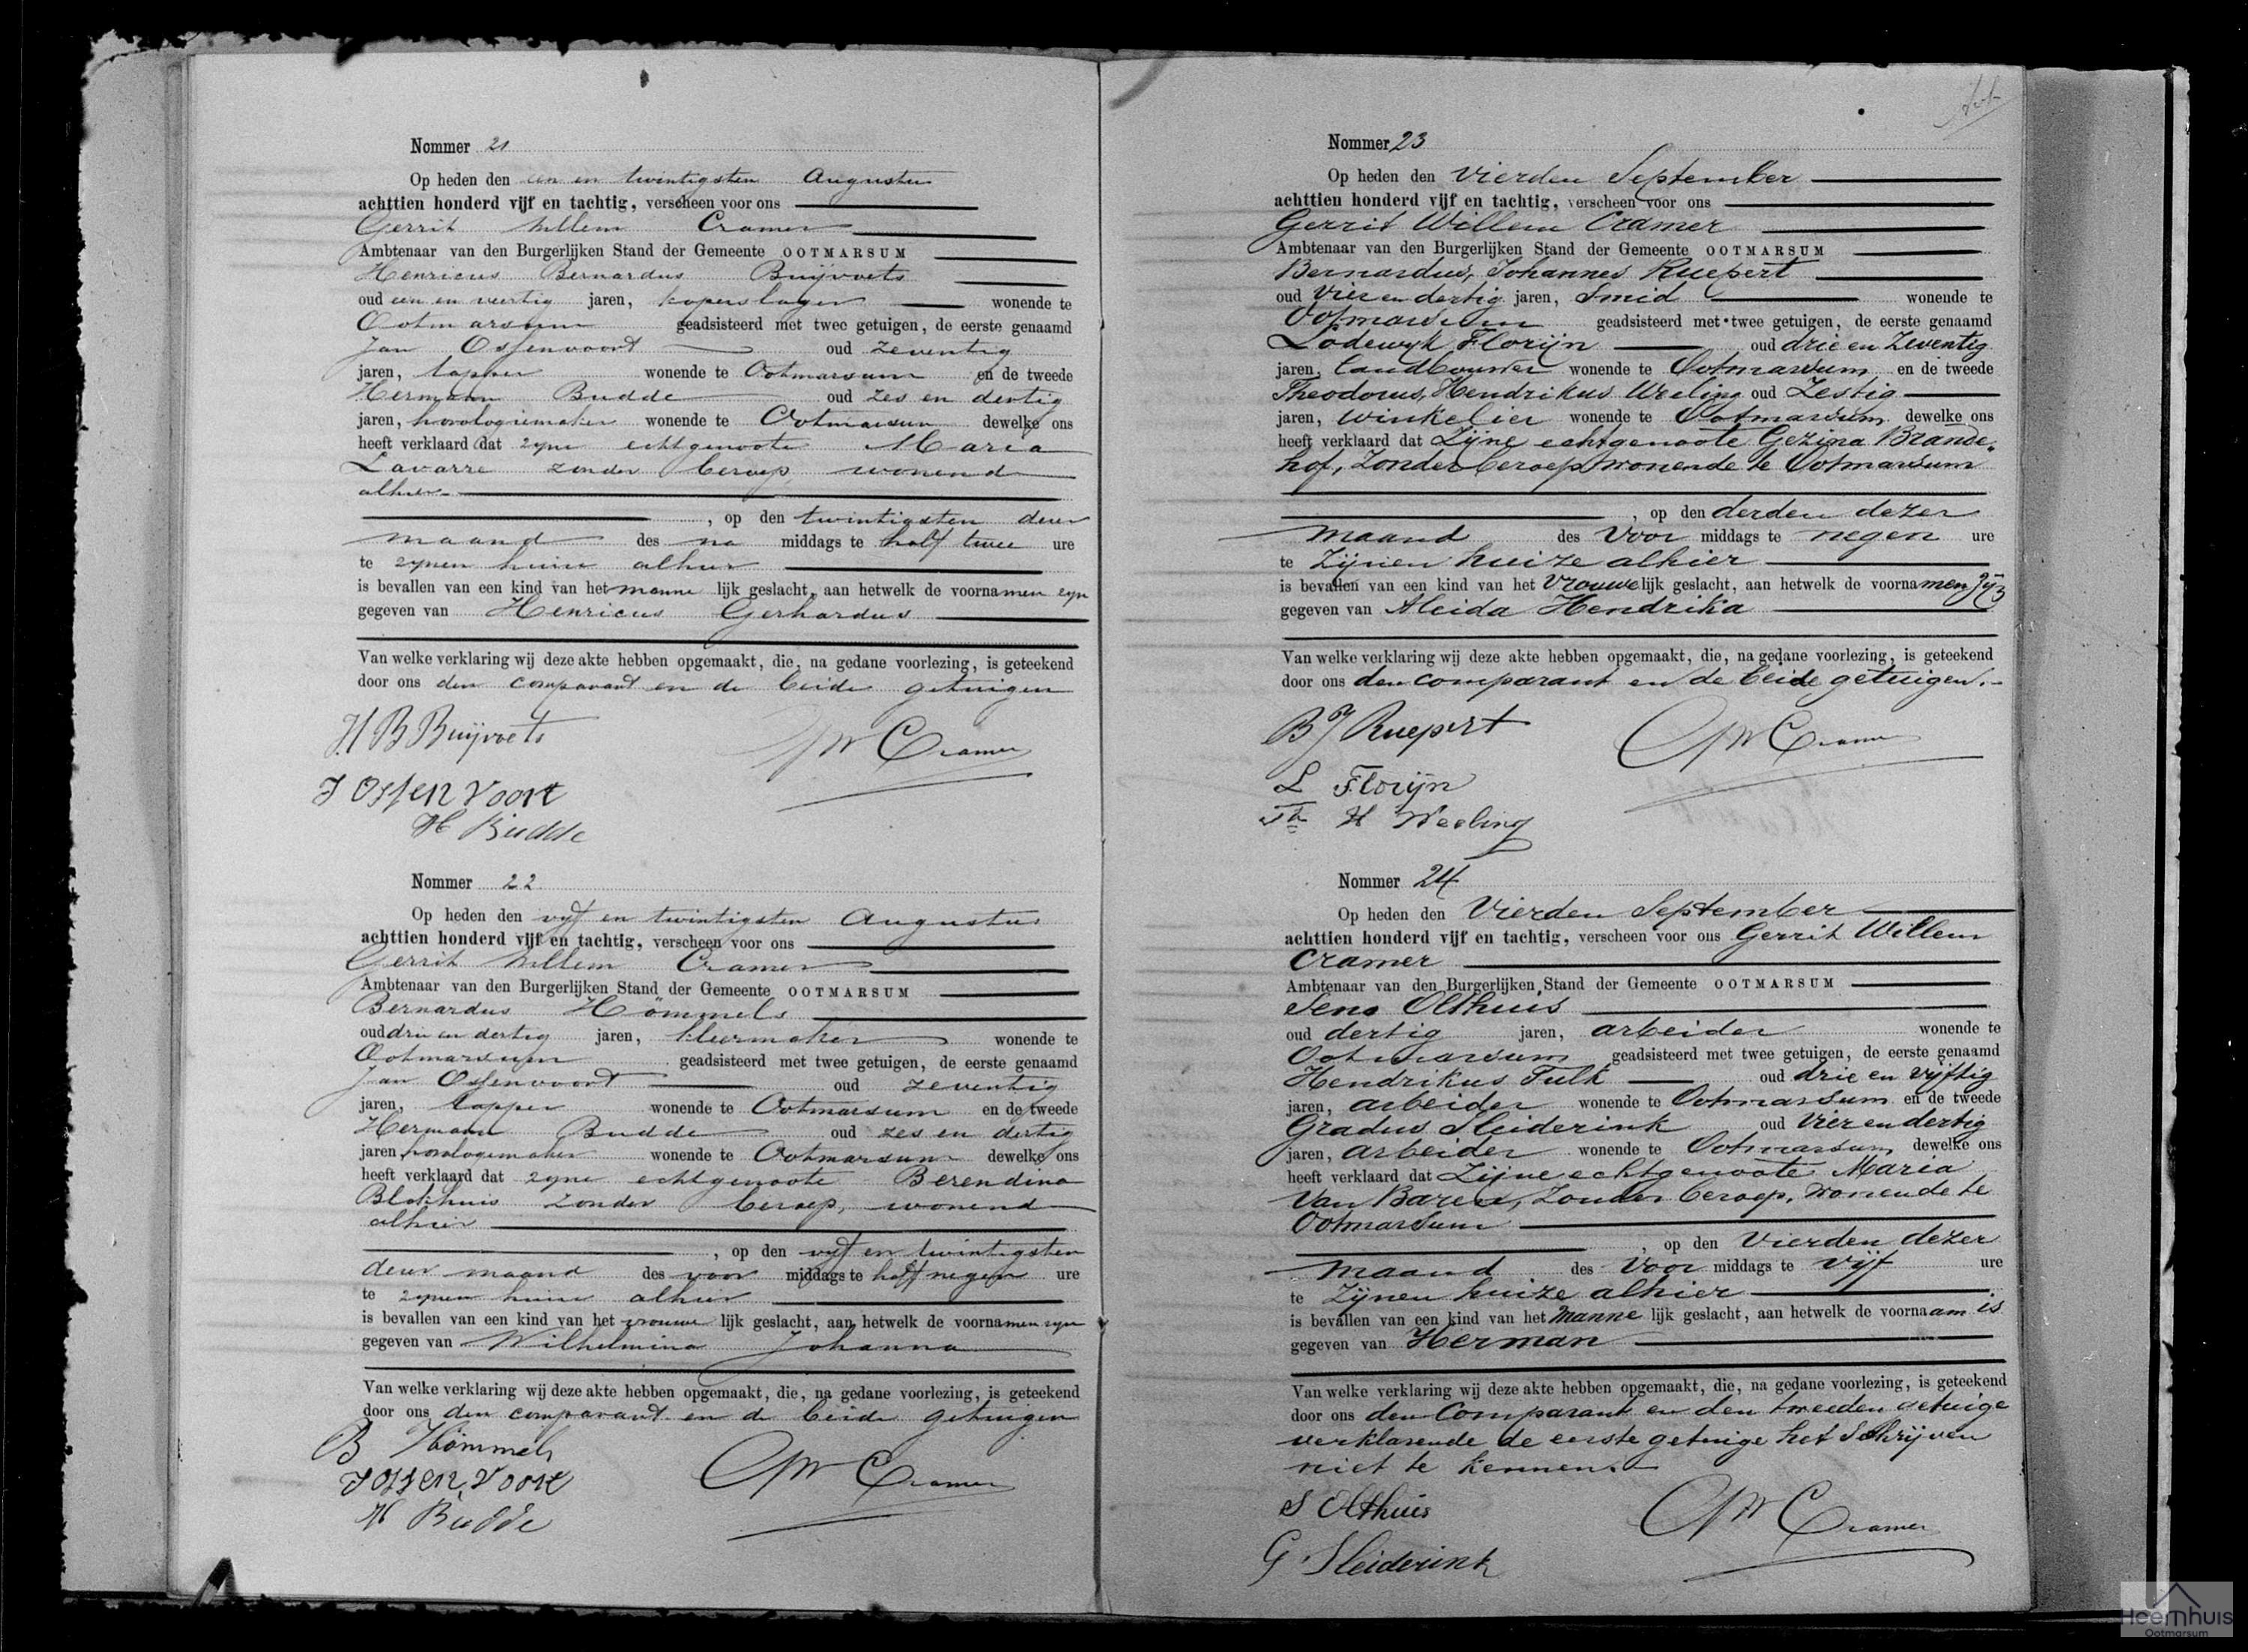 Nommer 21
Op heden den een en twintigsten Augustus
achttien honderd vijf en tachtig, verscheen voor ons
Gerrit Willem Cramer
Ambtenaar van den Burgerlijken Stand der Gemeente OOTMARSUM
Henricus Bernardus Buijvoets
oud een en veertig jaren, koperslager wonende te
Ootmarsum geadsisteerd met twee getuigen, de eerste genaamd
Jan Ossenvoort oud zeventig
jaren, tapper wonende te Ootmarsum en de tweede
Hermann Budde oud zes en dertig
jaren, horologiemaker wonende te Ootmarsum dewelke ons
heeft verklaard dat zyne echtgenoote Maria
Lavarre zonder beroep, wonend
alhier
, op den twintigsten dezer
maand des na middags te half twee ure
te zynen huize alhier
is bevallen van een kind van het manne lijk geslacht, aan hetwelk de voornamen zyn
gegeven van Henricus Gerhardus
Van welke verklaring wij deze akte hebben opgemaakt, die, na gedane voorlezing, is geteekend
door ons den comparant en de beide getuigen
H B Buijvoets GW Cramer
J Ossenvoort
H Budde
Nommer 22
Op heden den vyf en twintigsten Augustus
achttien honderd vijf en tachtig, verscheen voor ons
Gerrit Willem Cramer
Ambtenaar van den Burgerlijken Stand der Gemeente OOTMARSUM
Bernardus Hömmels
oud drie en dertig jaren, kleermaker wonende te
Ootmarsum geadsisteerd met twee getuigen, de eerste genaamd
Jan Ossenvoort oud zeventig
jaren, tapper wonende te Ootmarsum en de tweede
Hermann Budde oud zes en dertig
jaren horologemaker wonende te Ootmarsum dewelke ons
heeft verklaard dat zyne echtgenoote Berendina
Blokhuis zonder beroep, wonend
alhier
, op den vyf en twintigsten
dezer maand des voor middags te half negen ure
te zynen huize alhier
is bevallen van een kind van het vrouwe lijk geslacht, aan hetwelk de voornamen zyn
gegeven van Wilhelmina Johanna
Van welke verklaring wij deze akte hebben opgemaakt, die, na gedane voorlezing, is geteekend
door ons den comparant en de beide getuigen
B Hömmels
J Ossenvoort GW Cramer
H Budde
Nommer 23
Op heden den Vierden September
achttien honderd vijf en tachtig, verscheen voor ons
Gerrit Willem Cramer
Ambtenaar van den Burgerlijken Stand der Gemeente OOTMARSUM
Bernardus, Johannes Ruepert
oud Vier en dertig jaren, Smid wonende te
Ootmarsum geadsisteerd met twee getuigen, de eerste genaamd
Lodewyk Florijn oud drie en Zeventig
jaren, landbouwer wonende te Ootmarsum en de tweede
Theodorus, Hendrikus Weeling oud Zestig
jaren, winkelier wonende te Ootmarsum dewelke ons
heeft verklaard dat Zijne echtgenoote Gezina Brande„
hof, Zonder beroep wonende te Ootmarsum
, op den derden dezer
maand des Voor middags te negen ure
te Zijnen huize alhier
is bevallen van een kind van het Vrouwelijk geslacht, aan hetwelk de voornamen zijn
gegeven van Aleida Hendrika
Van welke verklaring wij deze akte hebben opgemaakt, die, na gedane voorlezing, is geteekend
door ons den comparant en de beide getuigen.
BJ Ruepert GW Cramer
L Florijn
Th H Weeling
Nommer 24
Op heden den Vierden September
achttien honderd vijf en tachtig, verscheen voor ons Gerrit Willem
Cramer
Ambtenaar van den Burgerlijken Stand der Gemeente OOTMARSUM
Seno Olthuis
oud dertig jaren, arbeider wonende te
Ootmarsum geadsisteerd met twee getuigen, de eerste genaamd
Hendrikus Tulk oud drie en vijftig
jaren, arbeider wonende te Ootmarsum en de tweede
Gradus Sleiderink oud Vier en dertig
jaren, arbeider wonende te Ootmarsum dewelke ons
heeft verklaard dat Zijne echtgenoote Maria
Van Baren, Zonder beroep, wonende te
Ootmarsum
, op den Vierden dezer
maand des Voor middags te vijf ure
te Zijnen huize alhier
is bevallen van een kind van het Manne lijk geslacht, aan hetwelk de voornaam is
gegeven van Herman
Van welke verklaring wij deze akte hebben opgemaakt, die, na gedane voorlezing, is geteekend
door ons den Comparant en den tweeden getuige
verklarende de eerste getuige het Schrijven
niet te kennen.
S Olthuis GW Cramer
G Sleiderink
Heemhuis
Ootmarsum